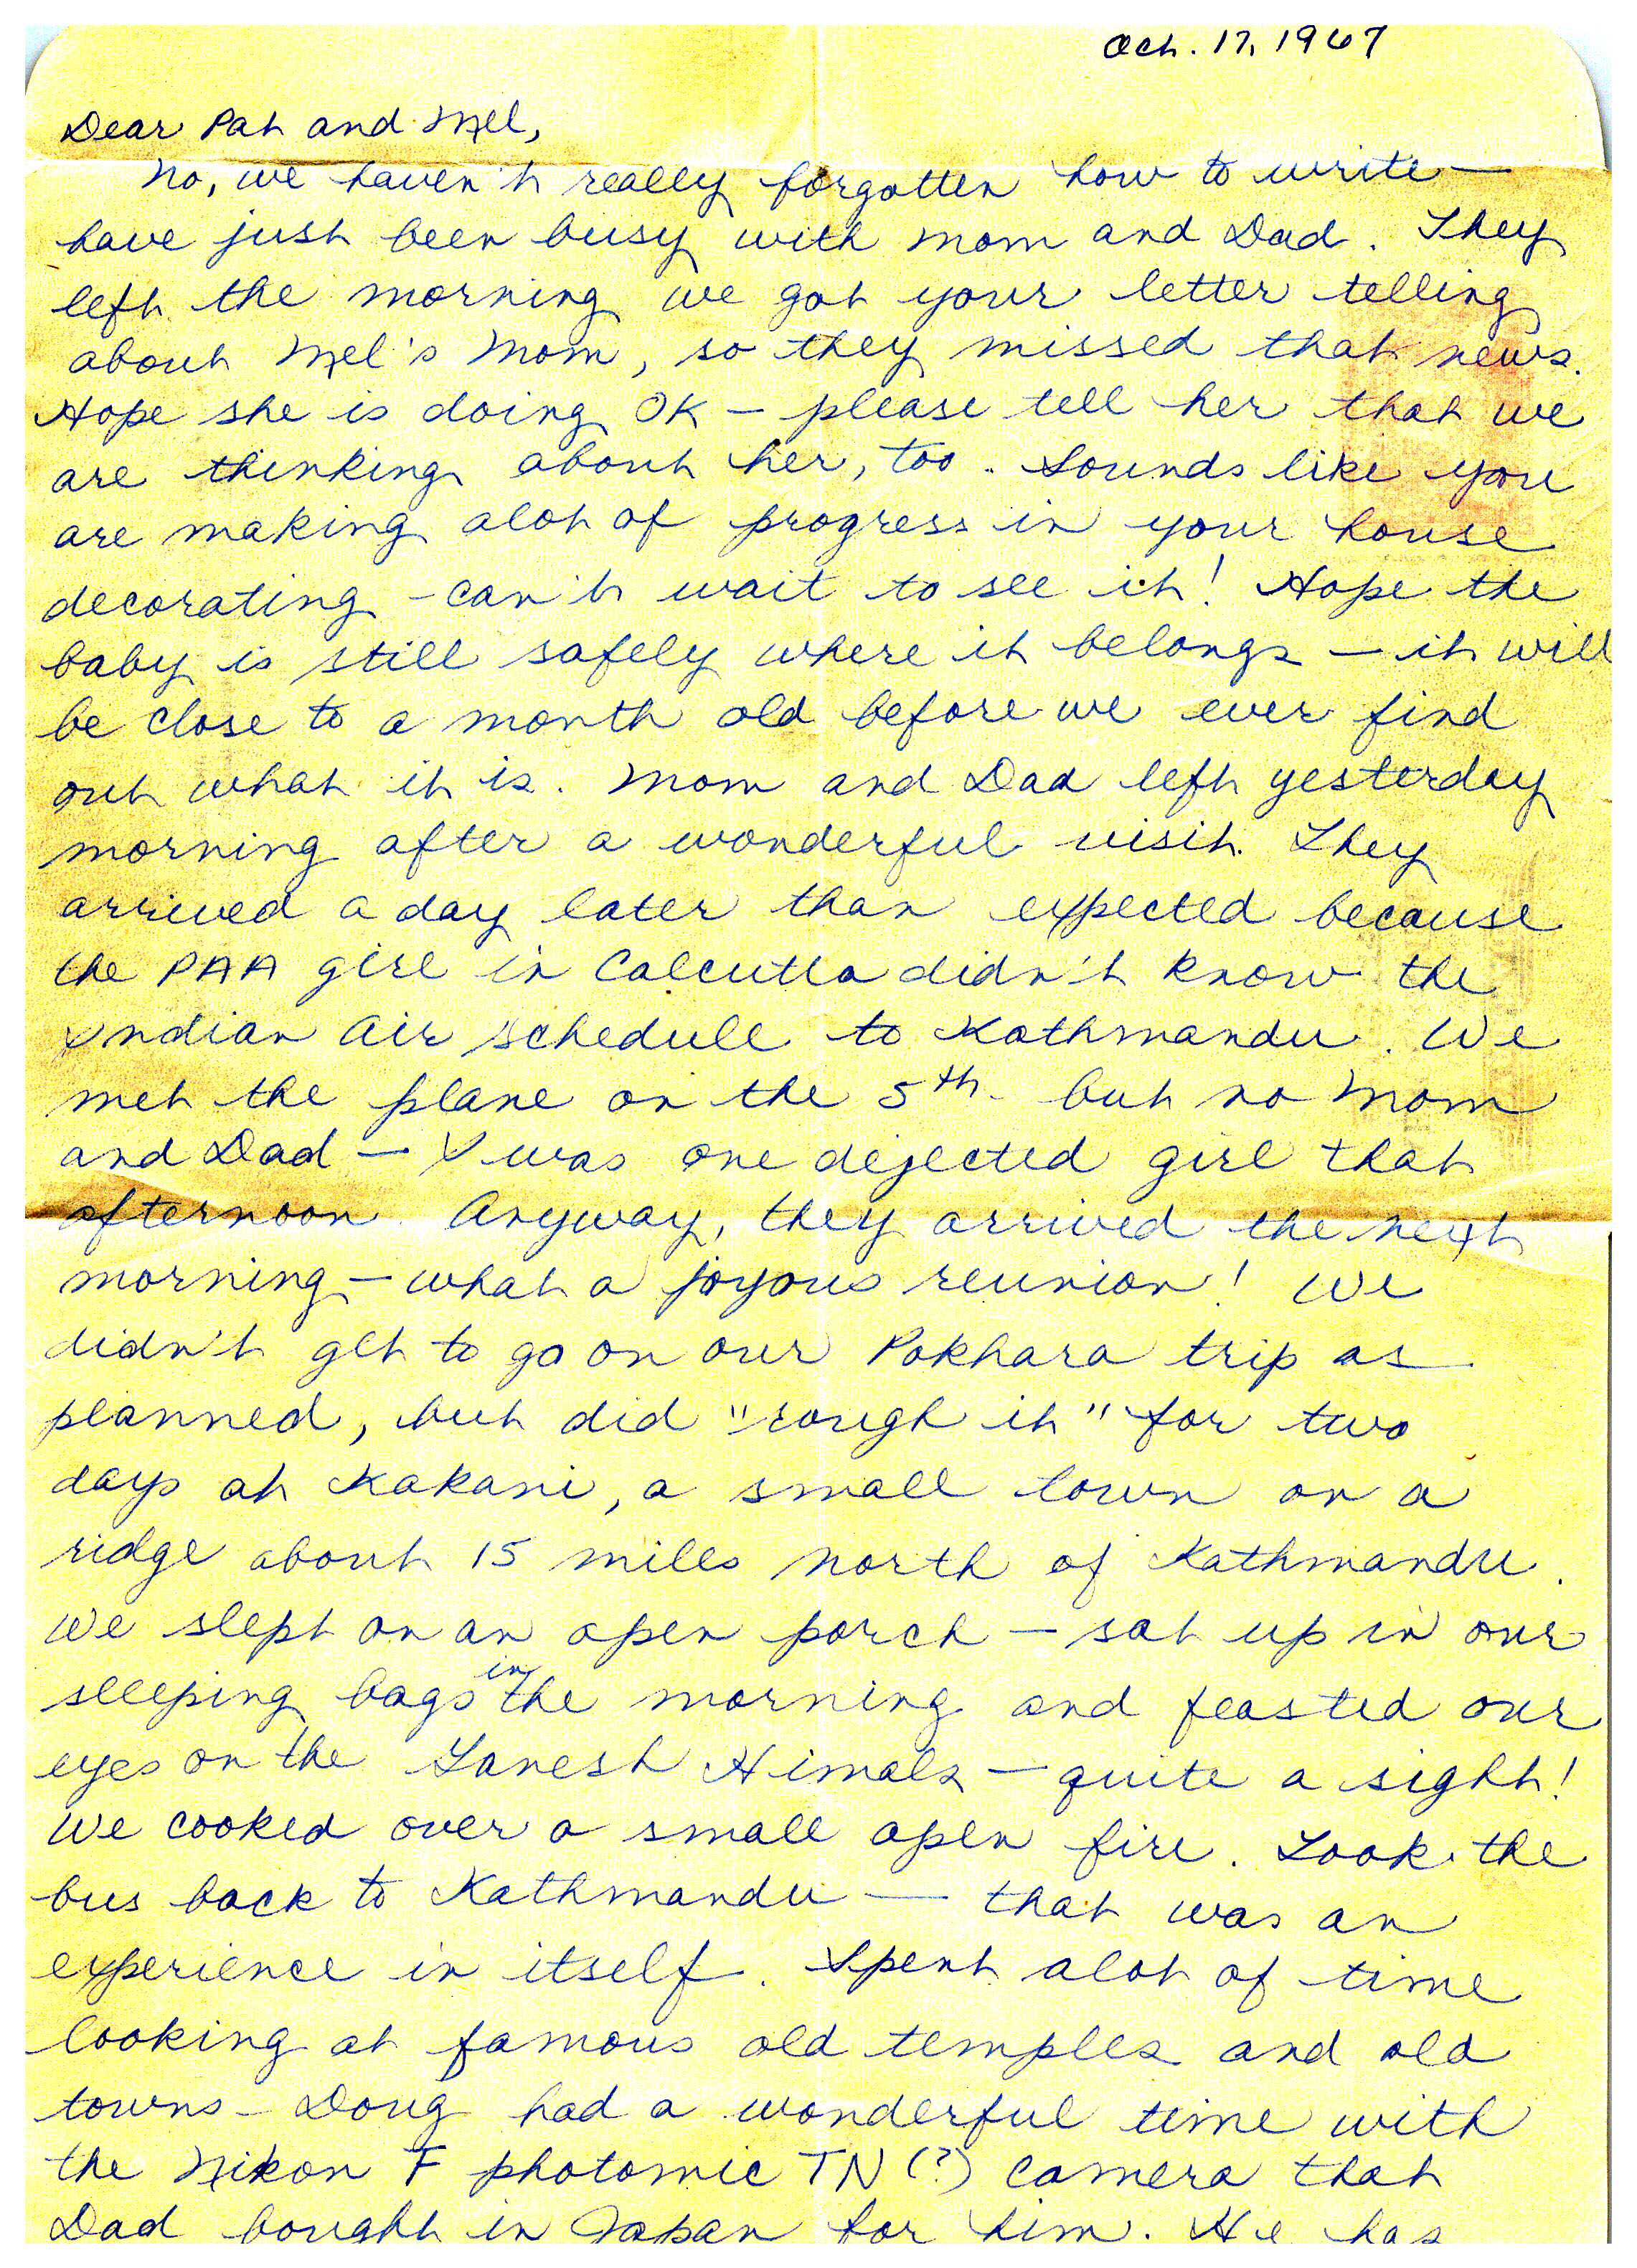 Oct. 17, 1967
Dear Pat and Mel,
No, we haven't really forgotten how to write —
have just been busy with Mom and Dad. They
left the morning we got your letter telling
about Mel's Mom, so they missed that news.
Hope she is doing OK — please tell her that we
are thinking about her, too. Sounds like you
are making alot of progress in your house
decorating - can't wait to see it! Hope the
baby is still safely where it belongs — it will
be close to a month old before we ever find
out what it is. Mom and Dad left yesterday
morning after a wonderful visit. They
arrived a day later than expected because
the PAA girl in Calcutta didn't know the
Indian Air schedule to Kathmandu. We
met the plane on the 5th - but no Mom
and Dad — I was one dejected girl that
afternoon. Anyway, they arrived the next
morning — what a joyous reunion! We
didn't get to go on our Pokhara trip as
planned, but did "rough it" for two
days at Kakani, a small town on a
ridge about 15 miles north of Kathmandu.
We slept on an open porch — sat up in our
sleeping bags in the morning and feasted our
eyes on the Ganesh Himals — quite a sight!
We cooked over a small open fire. Took the
bus back to Kathmandu — that was an
experience in itself. Spent alot of time
looking at famous old temples and old
towns - Doug had a wonderful time with
the Nikon F photomic TN (?) camera that
Dad bought in Japan for him. He has